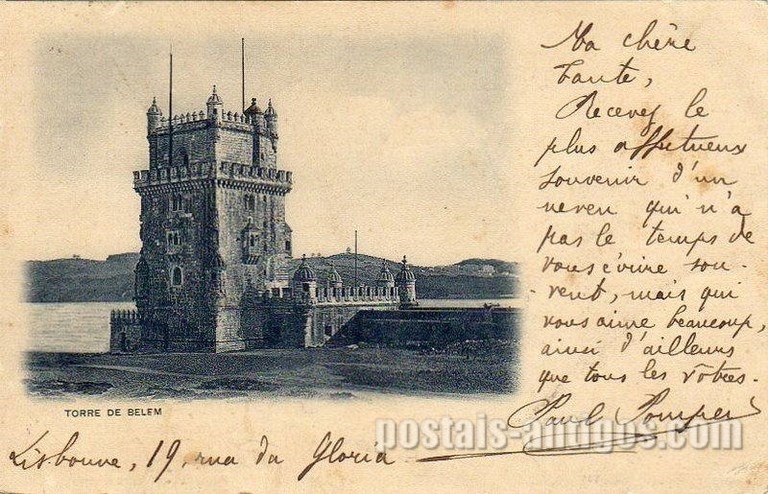 Ma chère
Tante,
Recevez le
plus affectueux
souvenir d'un
neveu qui n'a
pas le temps de
vous écrire sou-
vent, mais qui
vous aime beaucoup,
ainsi d'ailleurs
que tous les vôtres.
Paul
TORRE DE BELEM
postais-antigos.com
Lisbonne, 19, rua da Gloria